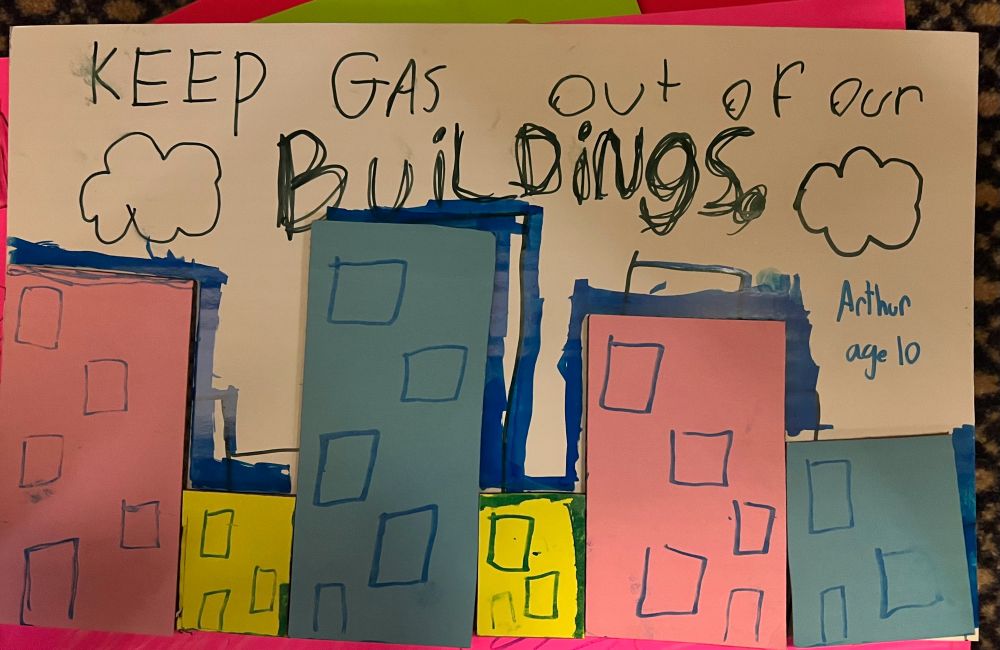 KEEP GAS out oF our
BuiLDiNgS.
Arthur
age 10